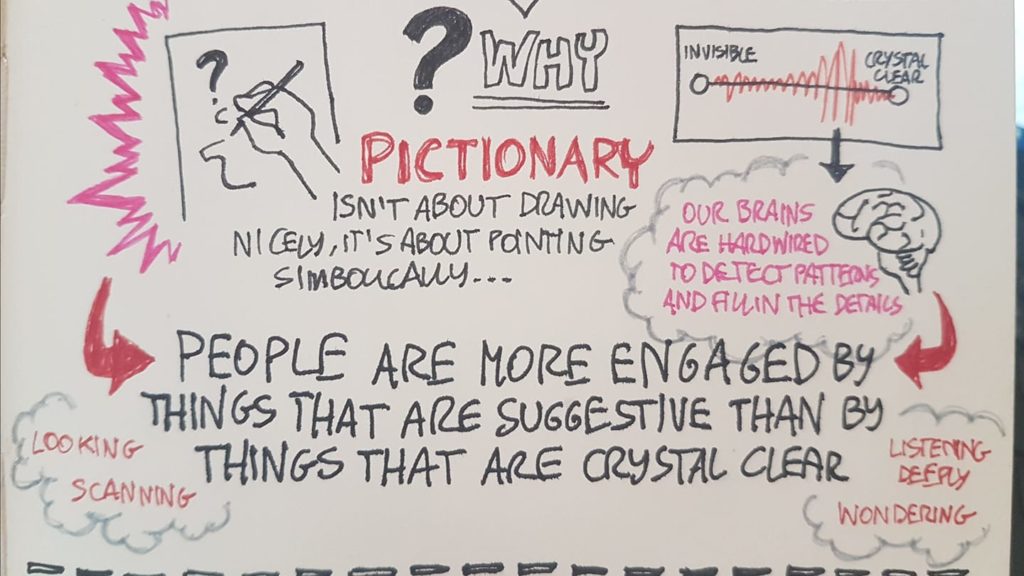 ? WHY
?
INVISIBLE
CRYSTAL
CLEAR
PICTIONARY
ISN'T ABOUT DRAWING
NICELY, IT'S ABOUT POINTING
SIMBOLICALLY...
OUR BRAINS
ARE HARDWIRED
TO DETECT PATTERNS
AND FILL IN THE DETAILS
PEOPLE ARE MORE ENGAGED BY
THINGS THAT ARE SUGGESTIVE THAN BY
THINGS THAT ARE CRYSTAL CLEAR
LOOKING
SCANNING
LISTENING
DEEPLY
WONDERING